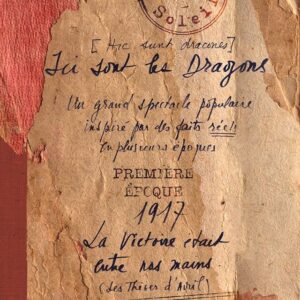 Soleil
[Hic sunt dracones]
Ici sont les Dragons
Un grand spectacle populaire
inspiré par des faits réels
en plusieurs époques
PREMIÈRE
ÉPOQUE
1917
La Victoire était
entre nos mains
(Les Thèses d'Avril)